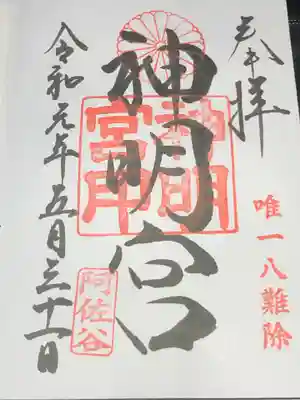 奉拝
唯一八難除
神明宮
神明宮印
阿佐谷
令和元年五月三十一日